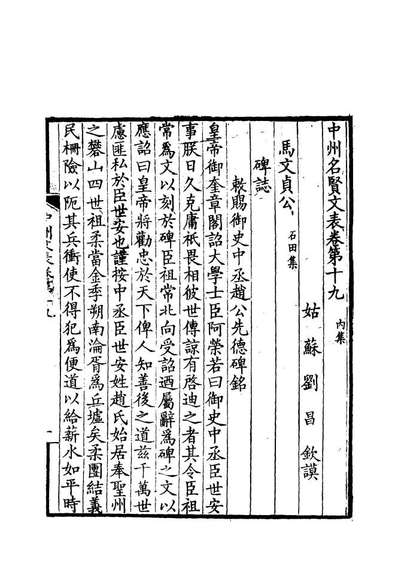 中州名賢文表卷第十九 内集
姑蘇劉昌欽謨
馬文貞公 石田集
碑誌
敕賜御史中丞趙公先德碑銘
皇帝御奎章閣詔大學士臣阿榮若曰御史中丞臣世安
事朕日久克庸祇畏相彼世傳諒有啓迪之者其令臣祖
常為文以刻於碑臣祖常北向受詔廼屬辭為碑之文以
應詔曰皇帝將勸忠於天下俾人知善後之道兹千萬世
慮匪私於臣世安也謹按中丞臣世安姓趙氏始居奉聖州
之礬山四世祖柔當金季朔南淪胥為兵墟矣柔團結義
民柵險以阨其兵衝使不得犯為便道以給薪水如平時